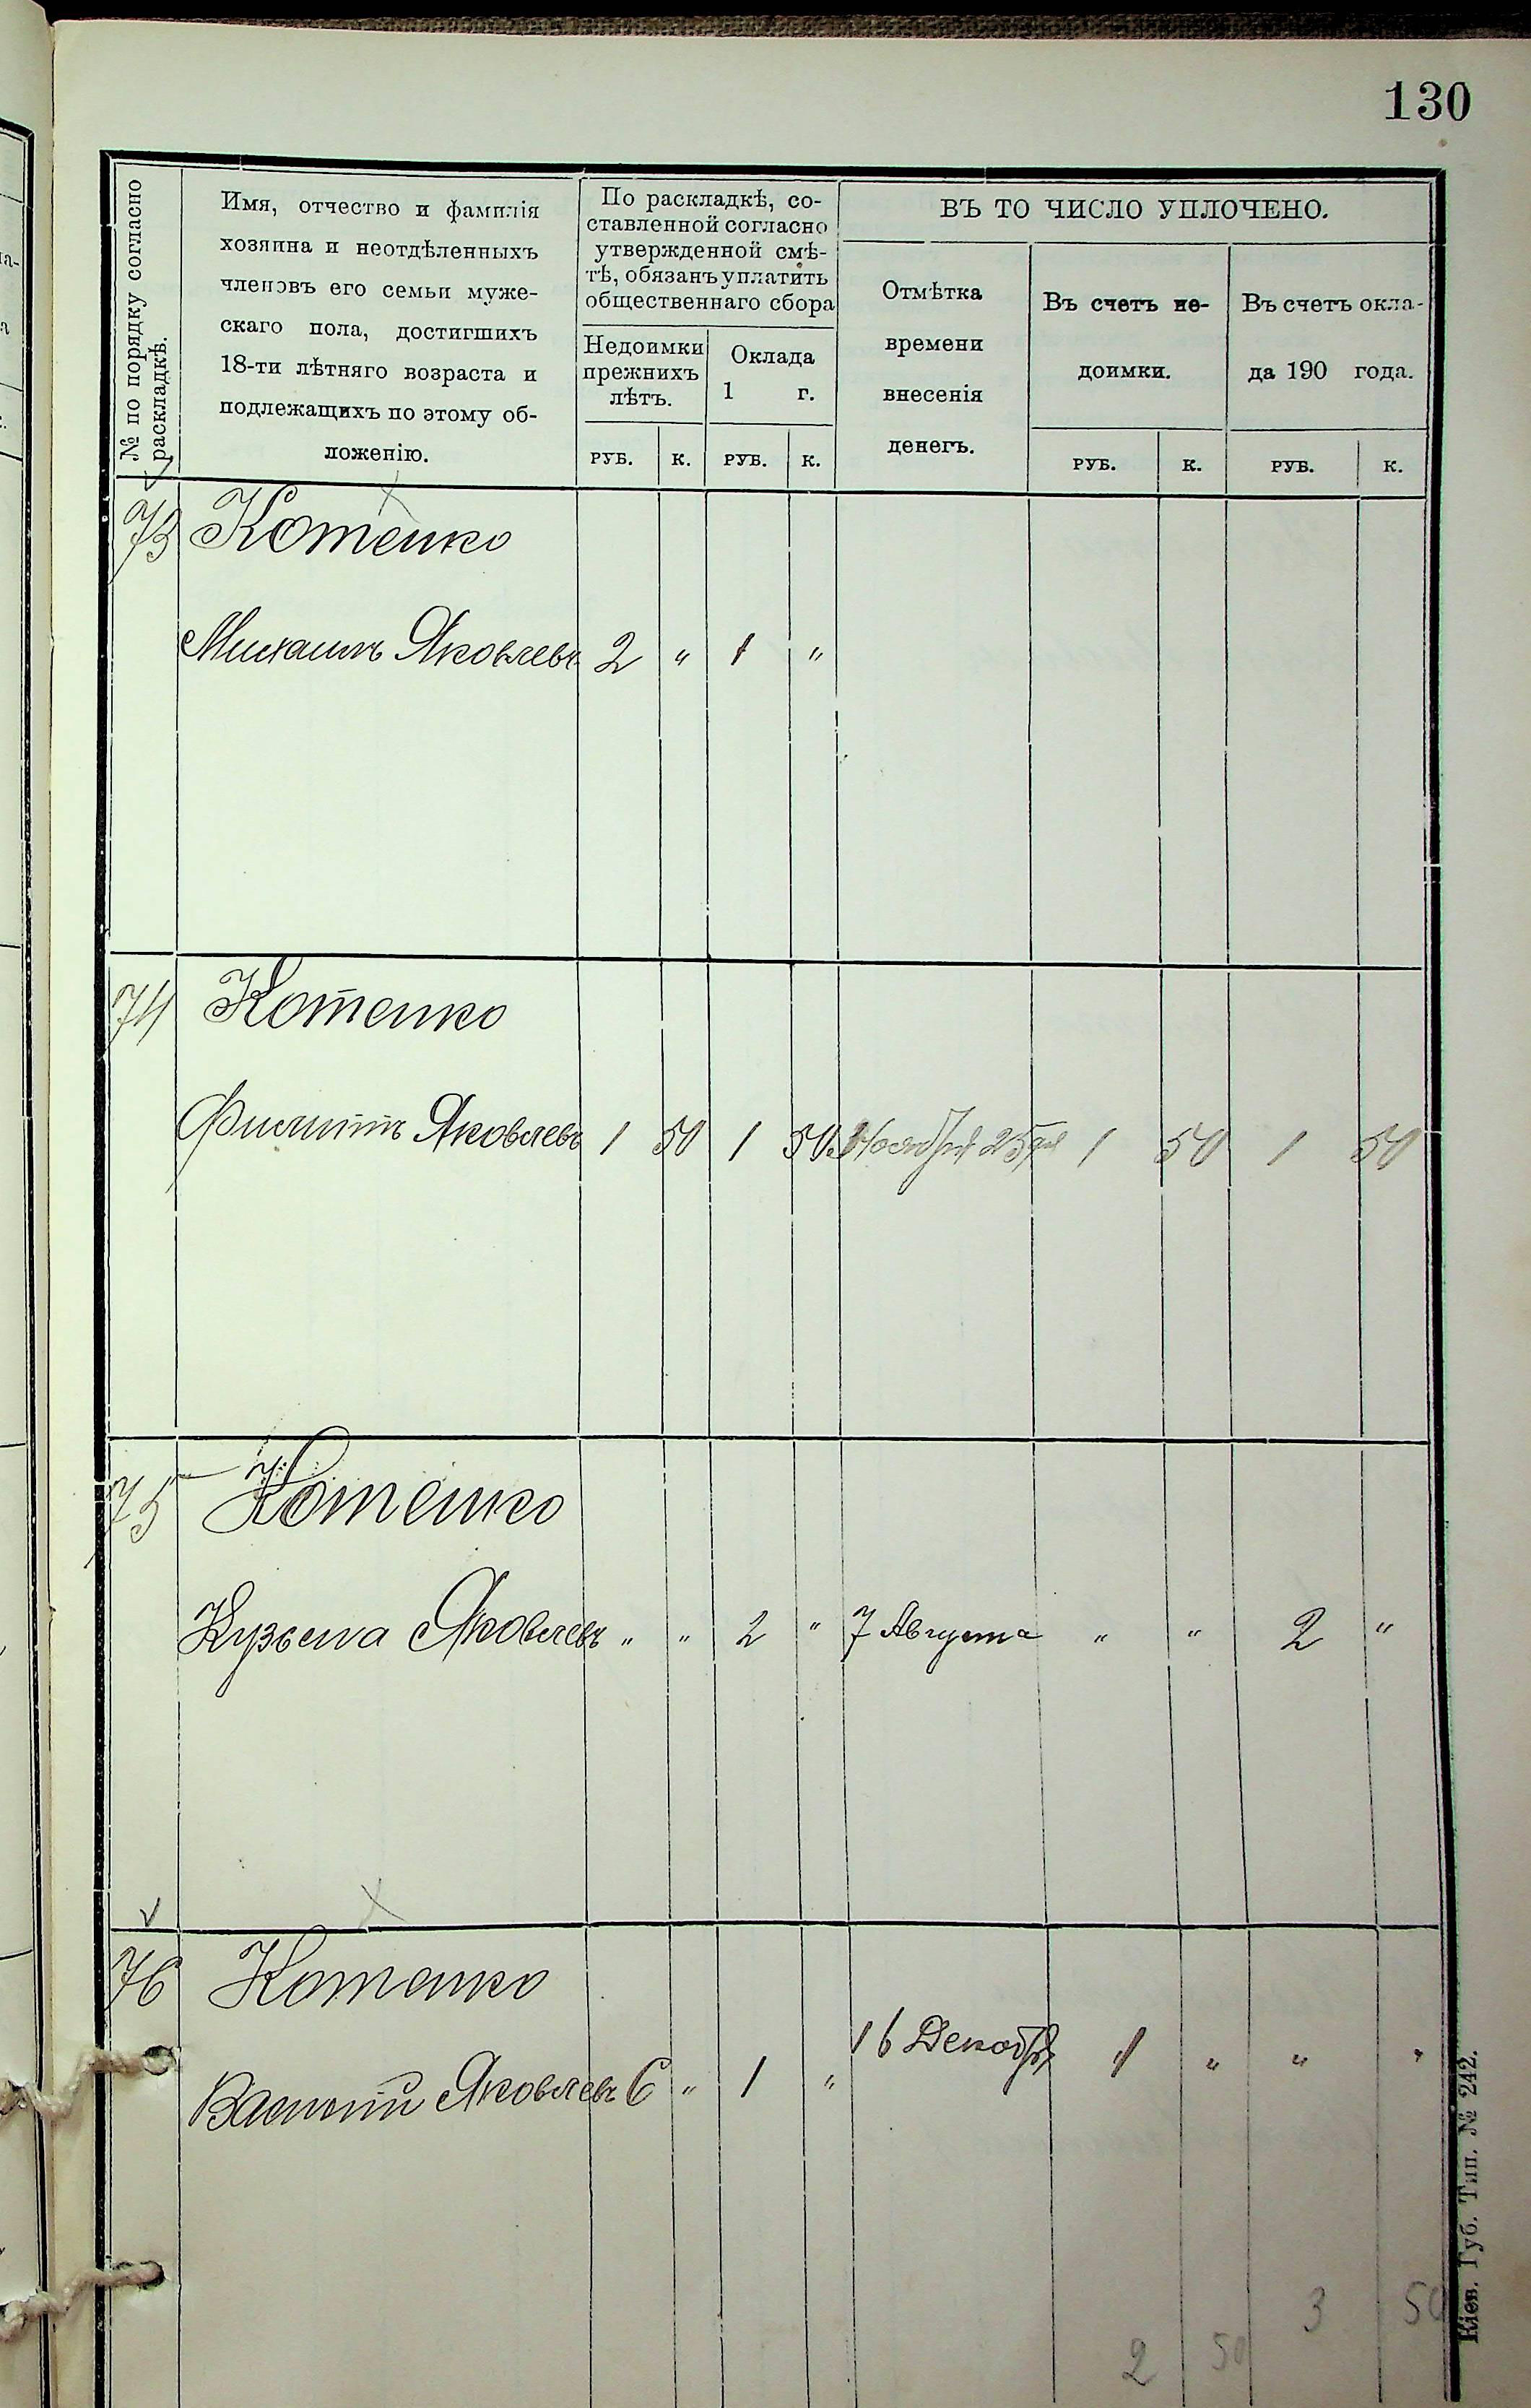 130
№ по порядку согласно
раскладкѣ.
Имя, отчество и фамилія
хозяина и неотдѣленныхъ
членовъ его семьи муже-
скаго пола, достигшихъ
18-ти лѣтняго возраста и
подлежащихъ по этому об-
ложенію.
По раскладкѣ, со-
ставленной согласно
утвержденной смѣ-
тѣ, обязанъ уплатить
общественнаго сбора
Недоимки
прежнихъ
лѣтъ.
Оклада
1 г.
ВЪ ТО ЧИСЛО УПЛОЧЕНО.
Отмѣтка
времени
внесенія
денегъ.
Въ счетъ не-
доимки.
Въ счетъ окла-
да 190 года.
РУБ. К. РУБ. К. РУБ. К. РУБ. К.
73 Котенко
Михаилъ Яковлевъ 2 " 1 "
74 Котенко
Филиппъ Яковлевъ 1 50 1 50 Ноября 25 дня 1 50 1 50
75 Котенко
Кузьма Яковлевъ " " 2 " 7 Августа " " 2 "
76 Котенко
16 Декабря 1 " " "
Василий Яковлевъ 6 " 1 "
3 50
2 50
Кіев. Губ. Тип. № 242.